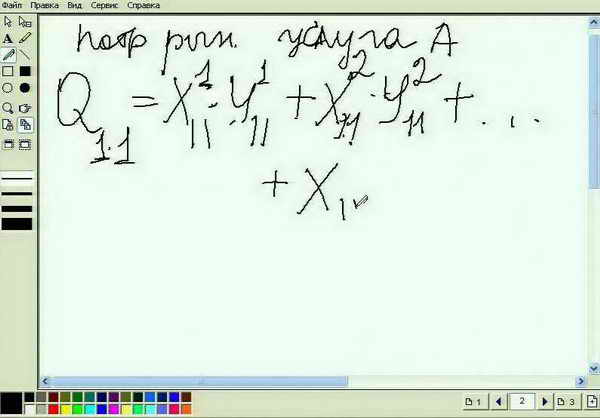 Файл Правка Вид Сервис Справка
потр рын. услуга А
Q₁.₁ = X₁₁¹ · У₁₁¹ + X₁₁² · У₁₁² + . . .
+ X₁
1 2 3